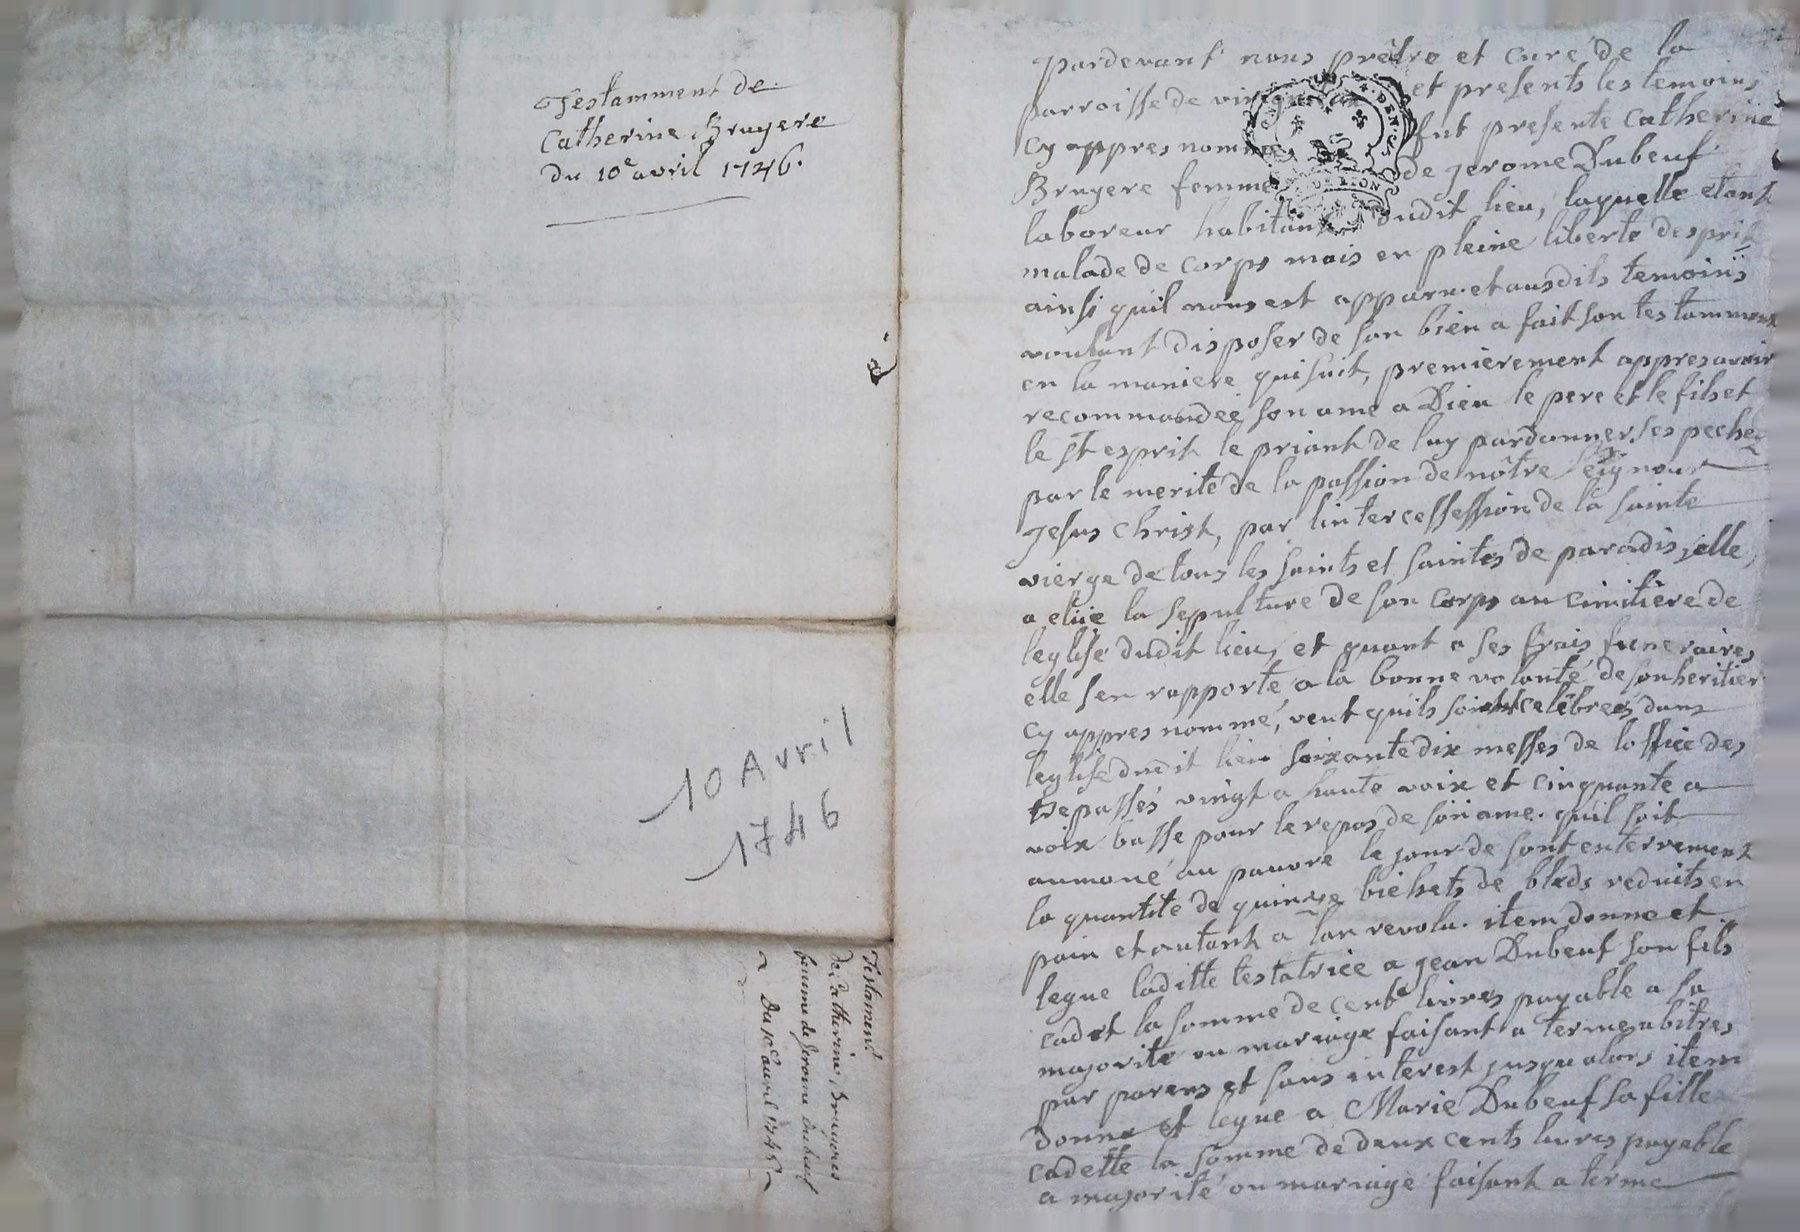 Testamment de
Catherine Bruyere
du 10e avril 1746.
10 Avril
1746
Testament
de Catherine Bruyeres
femme de Jerome dubeuf
Du 10e avril 1746
pardevant nous prêtre et curé de la
parroisse de et presents les temoins
cy appres nommes fut presente Catherine
Bruyere femme de jerome Dubeuf
laboreur habitant dudit lieu, laquelle etant
malade de corps mais en pleine liberte desprit
ainsi quil nous est apparu et ausdits temoins
voulant disposer de son bien a fait son testamment
en la maniere qui suit, premierement appres avoir
recommandée son ame a Dieu le pere et le fils et
le st esprit le priant de luy pardonner ses pechez
par le merite de la passion de nôtre seigneur
jesus christ, par lintercessession de la sainte
vierge de tous les saints et saintes de paradis, elle
a eluë la sepulture de son corps au cimitiere de
leglise dudit lieu, et quant a ses frais funeraires
elle sen rapporte a la bonne volonté de son heritier
cy appres nommé, veut quils soient celebrees dans
leglise dudit lieu soixante dix messes de loffice des
trepassés vingt a haute voix et cinquante a
voix basse pour le repos de son ame. quil soit
aumoné au pauvre le jour de sont enterrement
la quantite de quinze bichets de bleds reduits en
pain et autant a lan revolu. item donne et
legue laditte testatrice a jean Dubeuf son fils
cadet la somme de cent livres payable a sa
majorite ou mariage faisant a termes abitres
par parens et sans interest jusqu alors item
donne et legue a Marie Dubeuf sa fille
cadette la somme de deux cents livres payable
a majorité ou mariage faisant a terme